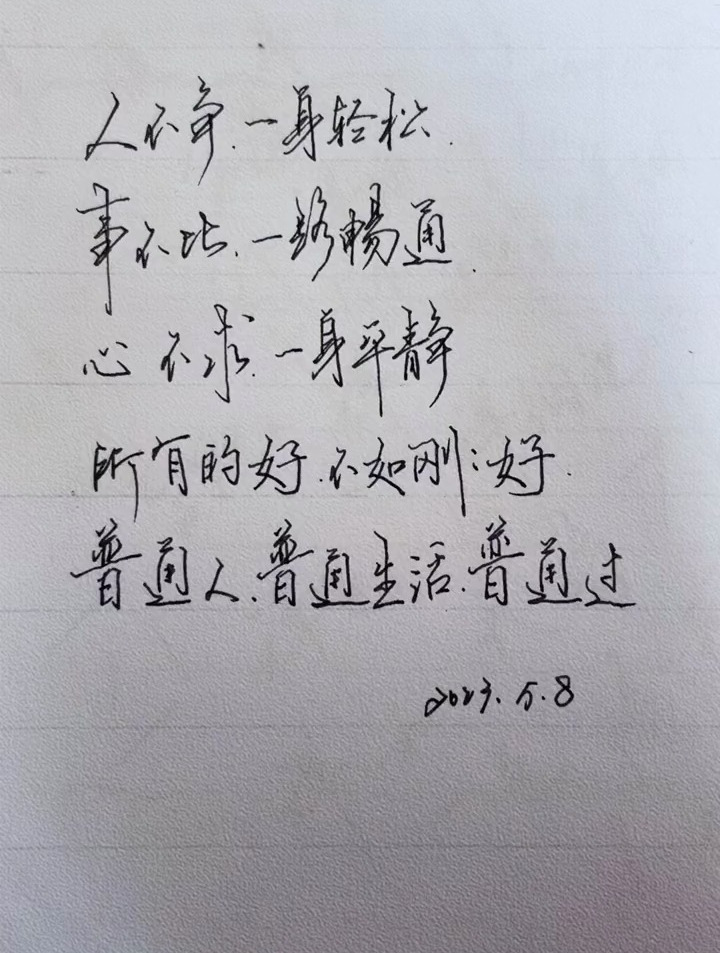 人不争.一身轻松.
事不比.一路暢通.
心不求.一身平静
所有的好.不如刚:好.
普通人.普通生活.普通过
2023.5.8